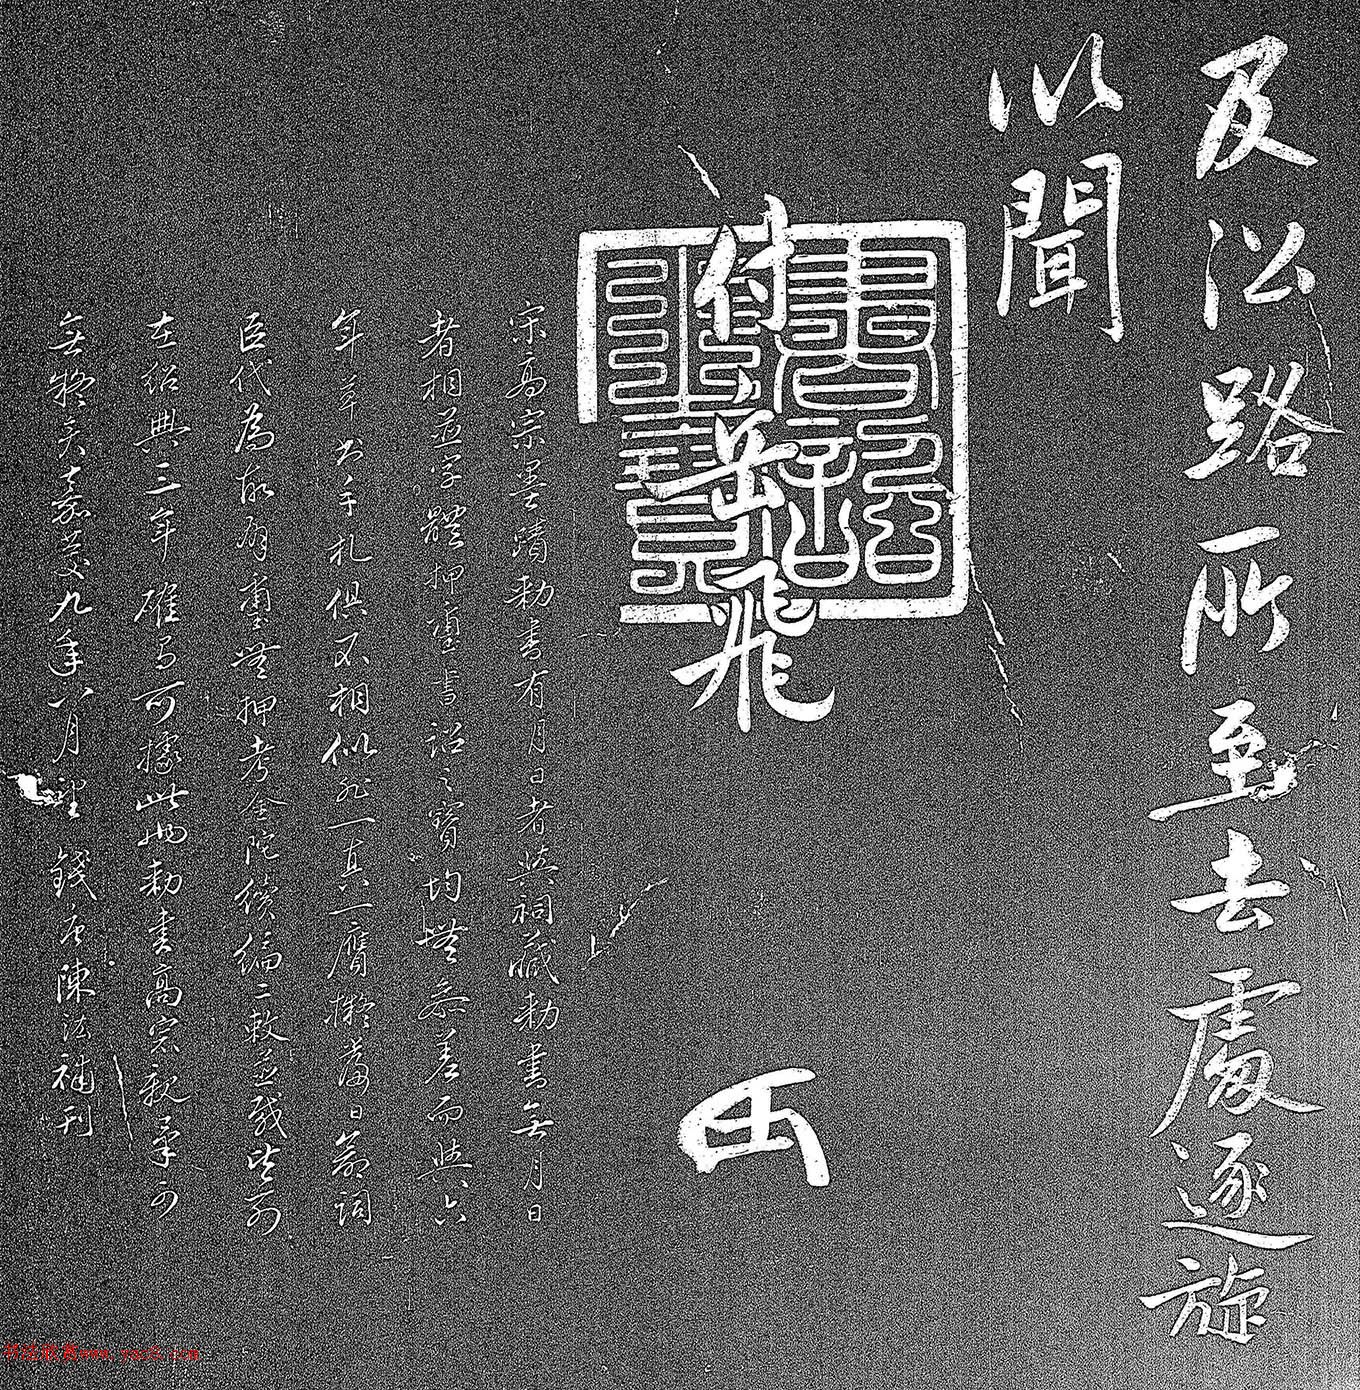 及沿路所至去處逐旋
以聞
付岳飛
書詔之寶
宋高宗墨蹟勅書有月日者與祠藏勅書無月日
者相並字體押璽書詔之寶均無參差而與六
年草書手札俱不相似非一真一贗擬當日翰詞
臣代為故有璽無押考金陀續編二敕並載皆列
在紹興三年確為可據此勅書高宗親筆
無疑矣嘉慶九年八月望錢唐陳法補刊